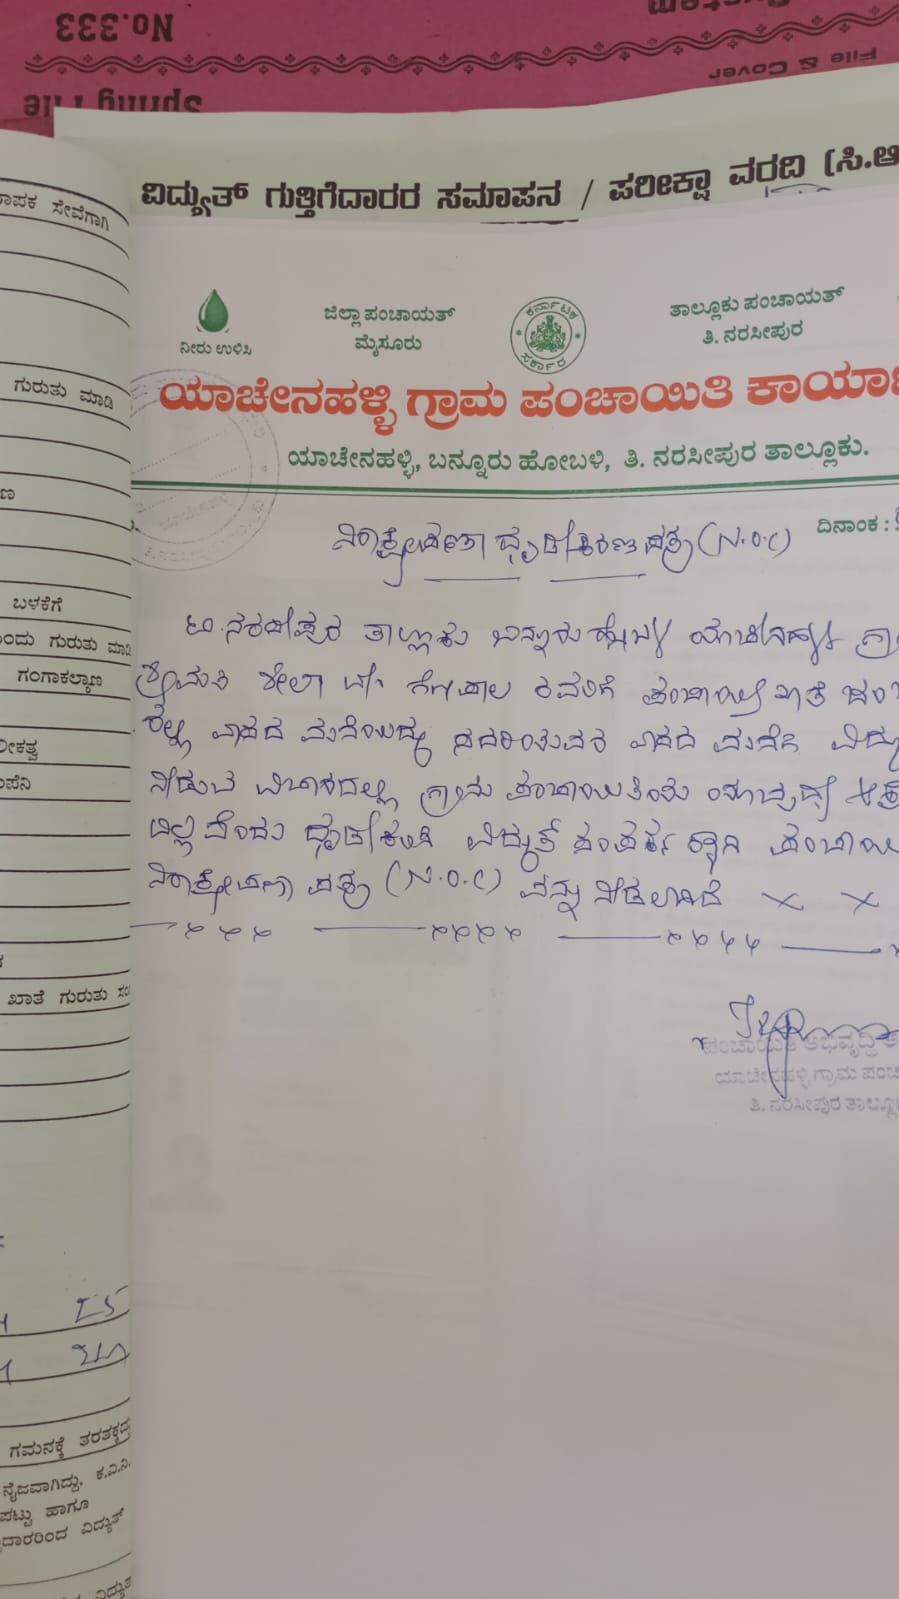 No.333
File & Cover
Spring File
ವಿದ್ಯುತ್ ಗುತ್ತಿಗೆದಾರರ ಸಮಾಪನ / ಪರೀಕ್ಷಾ ವರದಿ (ಸಿ.ಆ
ನೀರು ಉಳಿಸಿ
ಜಿಲ್ಲಾ ಪಂಚಾಯತ್
ಮೈಸೂರು
ಕರ್ನಾಟಕ
ಸರ್ಕಾರ
ತಾಲ್ಲೂಕು ಪಂಚಾಯತ್
ತಿ. ನರಸೀಪುರ
ಯಾಚೇನಹಳ್ಳಿ ಗ್ರಾಮ ಪಂಚಾಯಿತಿ ಕಾರ್ಯಾ
ಯಾಚೇನಹಳ್ಳಿ, ಬನ್ನೂರು ಹೋಬಳಿ, ತಿ. ನರಸೀಪುರ ತಾಲ್ಲೂಕು.
ದಿನಾಂಕ :
ನಿರಾಕ್ಷೇಪಣಾ ಧೃಡೀಕರಣ ಪತ್ರ (N.O.C)
ಟಿ.ನರಸೀಪುರ ತಾಲ್ಲೂಕು ಬನ್ನೂರು ಹೋಬಳಿ ಯಾಚೇನಹಳ್ಳಿ ಗ್ರಾ
ಶ್ರೀಮತಿ ಶೀಲಾ ರವರಿಗೆ ಪಂಚಾಯ್ತಿ ಖಾತೆ
ವಾಸದ ಮನೆಯಿದ್ದು ಸದರಿಯವರ ವಾಸದ ಮನೆಗೆ ವಿದ್ಯು
ನೀಡುವ ವಿಚಾರದಲ್ಲಿ ಗ್ರಾಮ ಪಂಚಾಯಿತಿಯು ಯಾವುದೇ
ಇಲ್ಲವೆಂದು ಧೃಡೀಕರಿಸಿ ವಿದ್ಯುತ್ ಸಂಪರ್ಕಕ್ಕಾಗಿ ಪಂಚಾಯಿ
ನಿರಾಕ್ಷೇಪಣಾ ಪತ್ರ (N.O.C) ವನ್ನು ನೀಡಲಾಗಿದೆ
ಪಂಚಾಯಿತಿ ಅಭಿವೃದ್ಧಿ
ಯಾಚೇನಹಳ್ಳಿ ಗ್ರಾಮ ಪಂಚ
ತಿ. ನರಸೀಪುರ ತಾಲ್ಲೂ
ಾಪಕ ಸೇವೆಗಾಗಿ
ಗುರುತು ಮಾಡಿ
ಬಳಕೆಗೆ
ಂದು ಗುರುತು ಮಾಡಿ
ಗಂಗಾಕಲ್ಯಾಣ
ಖಾತೆ ಗುರುತು
ಗಮನಕ್ಕೆ ತರತಕ್ಕದ್ದು
ನೈಜವಾಗಿದ್ದು, ಕ.ವಿ.ನಿ.
ಪಟ್ಟು ಹಾಗೂ
ದಾರರಿಂದ ವಿದ್ಯುತ್
ವಿದ್ಯುತ